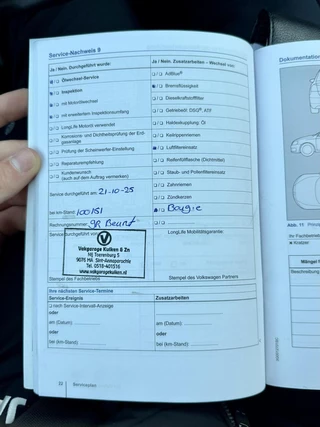 Service-Nachweis 9
Ja / Nein. Durchgeführt wurde:
Ölwechsel-Service
Inspektion
mit Motorölwechsel
mit erweitertem Inspektionsumfang
LongLife Motoröl verwendet
Korrosions- und Dichtheitsprüfung der Erdgasanlage
Prüfung der Scheinwerfer-Einstellung
Reparaturempfehlung
Kundenwunsch
(auch auf dem Auftrag vermerken)
Service durchgeführt am: 21-10-25
bei km-Stand: 100151
Rechnungsnummer:
Service durchgeführt von:
Vakgarage Kuiken & Zn
9076 HA Sint-Annaparochie
Tel. 0518-401516
www.vakgaragekuiken.nl
Stempel des Fachbetriebs
Ja / Nein. Zusatzarbeiten – Wechsel von:
AdBlue®
Bremsflüssigkeit
Dieselkraftstofffilter
Getriebeöl: DSG®, ATF
Haldexkupplung: Öl
Keilrippenriemen
Luftfiltereinsatz
Reifenfüllflasche (Dichtmittel)
Staub- und Pollenfiltereinsatz
Zahnriemen
Zündkerzen
Bougie
LongLife Mobilitätsgarantie:
Stempel des Volkswagen Partners
Ihre nächsten Service-Termine
Service-Ereignis
nach Service-Intervall-Anzeige
oder
am (Datum)
oder
bei (km-Stand):
Zusatzarbeiten:
am (Datum)
oder
bei (km-Stand):
22 Serviceplan
Dokumentation
Abb. 11
Ihr Fachbetrieb
Kratzer
Mängel
Beschreibung